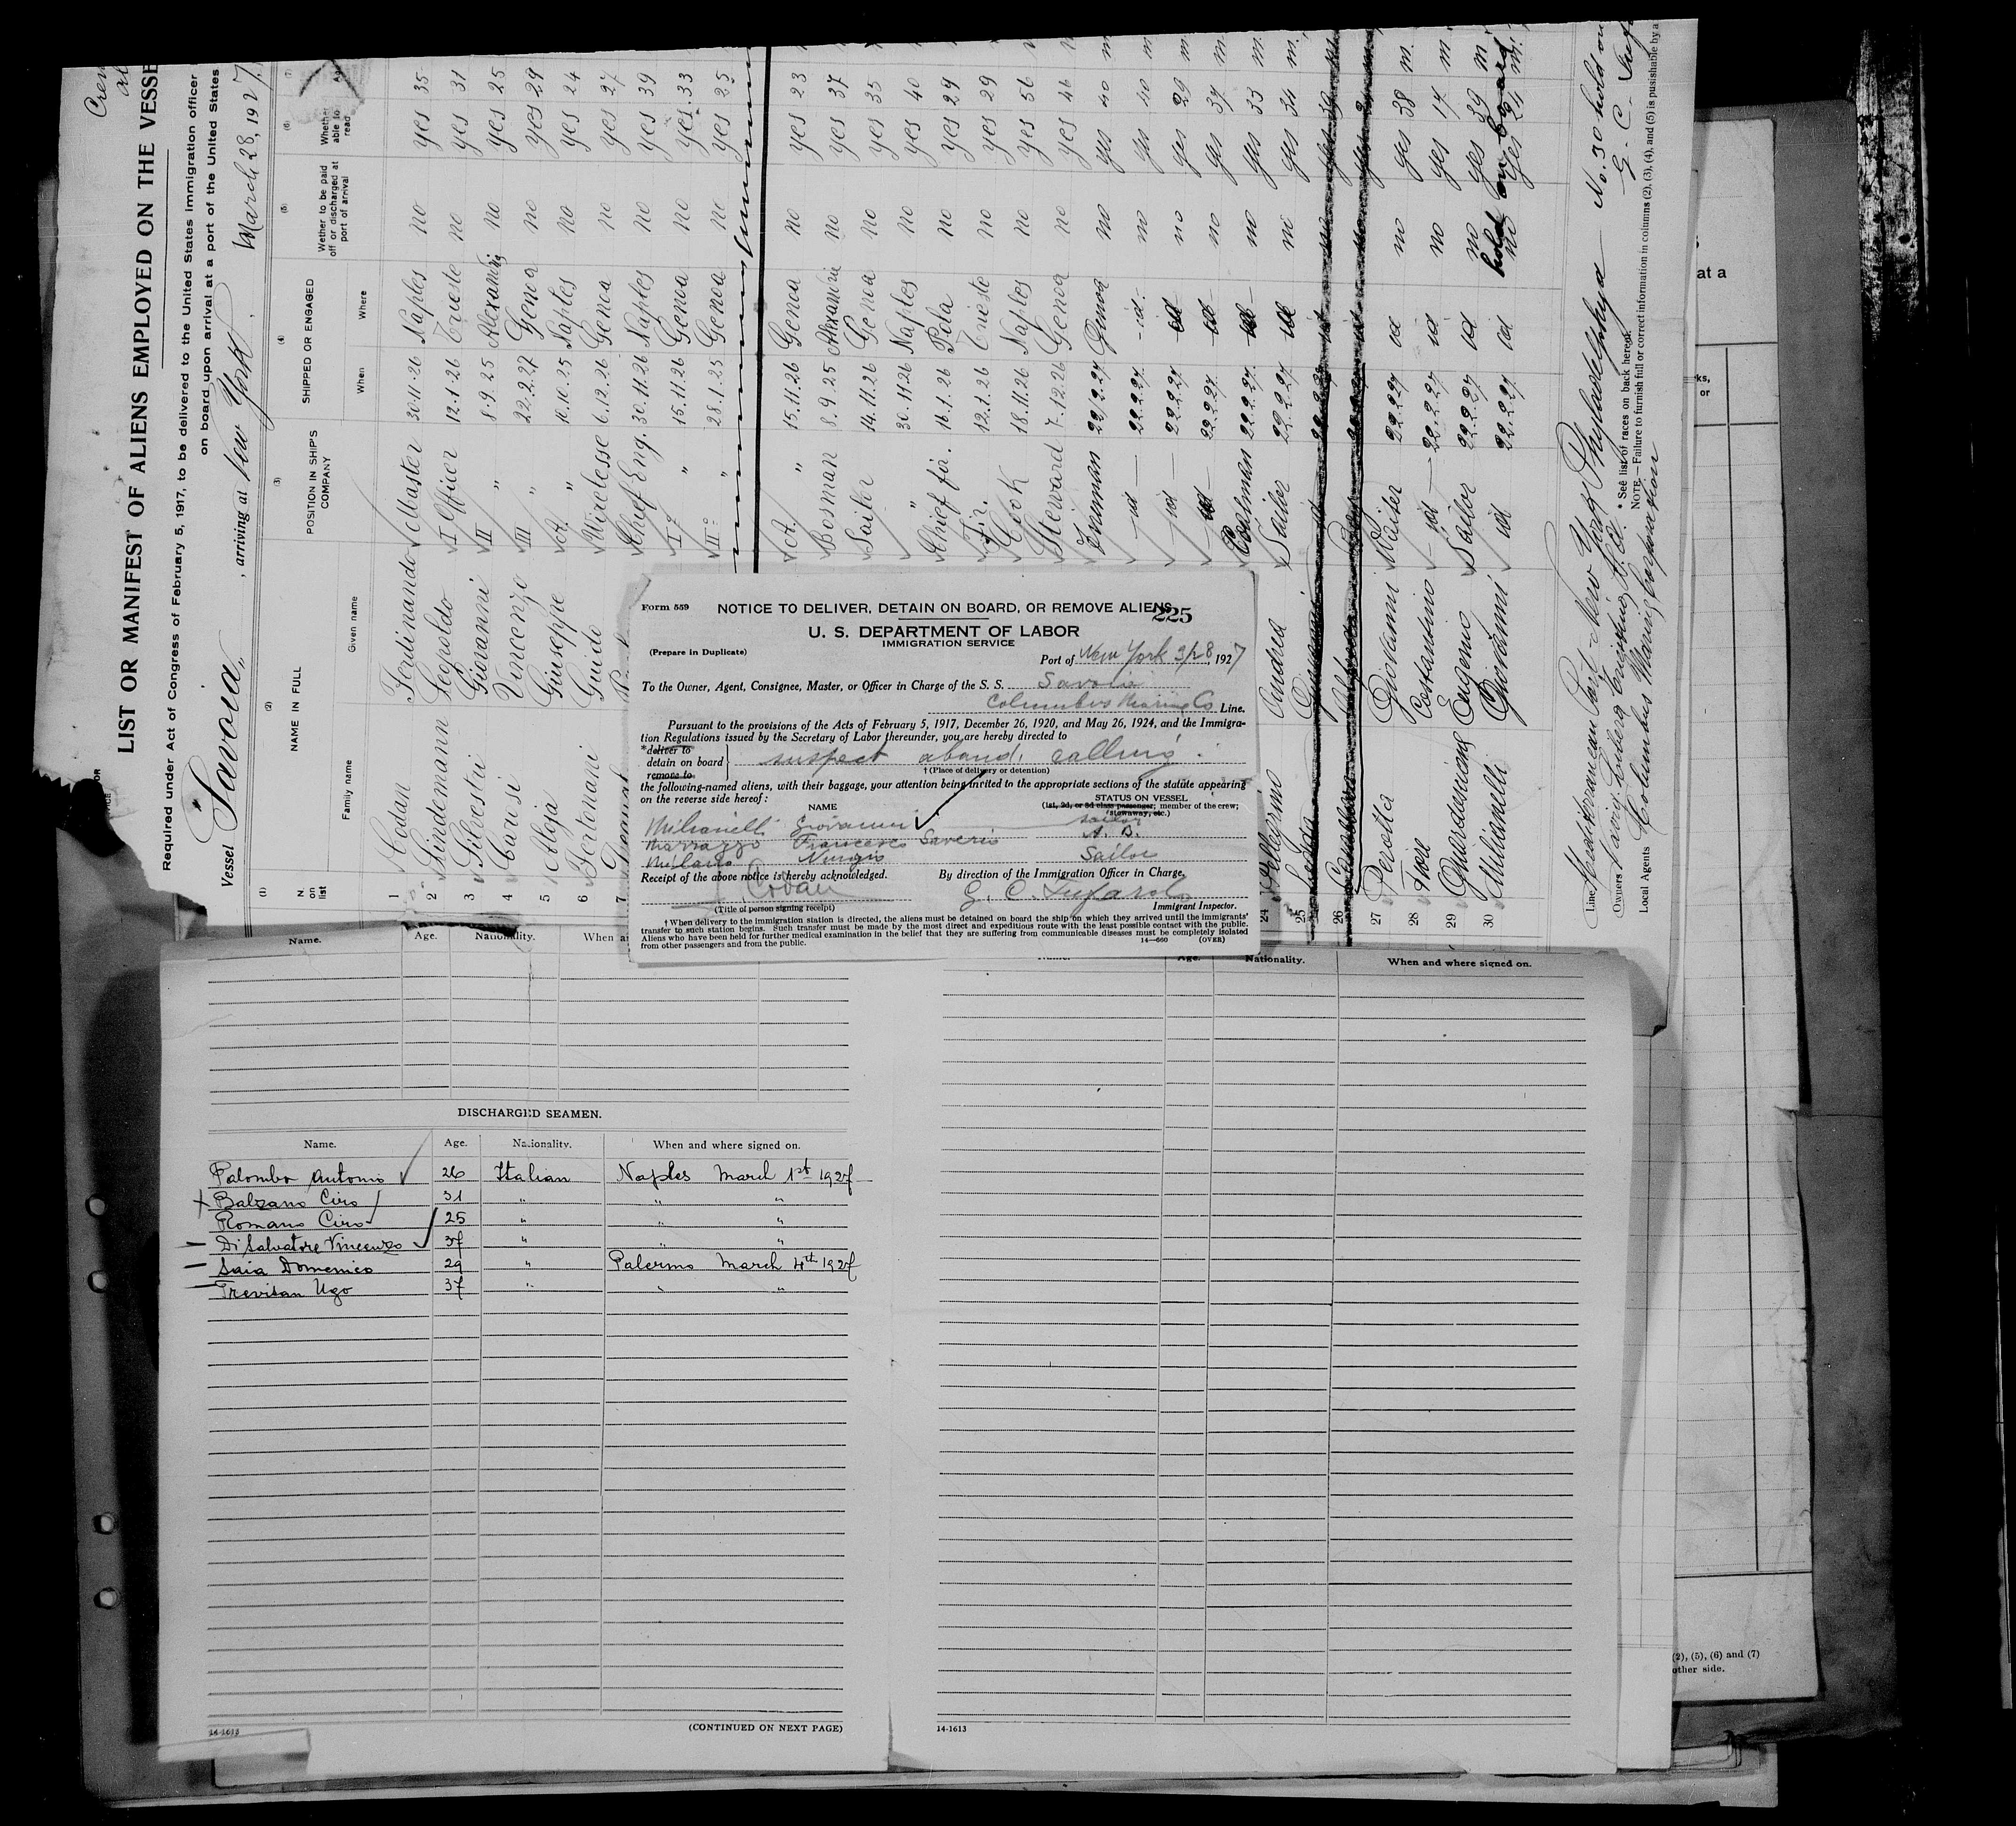 LIST OR MANIFEST OF ALIENS EMPLOYED ON THE VESSE
Required under Act of Congress of February 5, 1917, to be delivered to the United States immigration officer
on board upon arrival at a port of the United States
Vessel "Savoia", arriving at New York. March 28, 1927.
(1) (2) (3) (4) (5) (6) (7)
N. on list
NAME IN FULL
Family name Given name
POSITION IN SHIP'S COMPANY
SHIPPED OR ENGAGED
When Where
Wether to be paid off or discharged at port of arrival
Whether able to read
1 Codan Ferdinando Master 30.11.26 Naples no yes 35
2 Lindemann Leopoldo I Officer 12.1.26 Trieste no yes 31
3 Silvestri Giovanni II " 8.9.25 Alexandria no yes 25
4 Carosi Vincenzo III " 22.2.27 Genoa no yes 29
5 Aloja Giuseppe A. " 10.10.25 Naples no yes 24
6 Bertonani Guido Wirelesse 6.12.26 Genoa no yes 27
7 Chief Eng. 30.11.26 Naples no yes 39
I° " 15.11.26 Genoa no yes 33
II° " 28.1.23 Genoa no yes 25
A. " 15.11.26 Genoa no yes 23
Bosman 8.9.25 Alexandria no yes 37
Sailor 14.11.26 Genoa no yes 35
" 30.11.26 Naples no yes 40
Chief fir. 16.1.26 Pola no yes 29
Fir. 12.1.26 Trieste no yes 29
Cook 18.11.26 Naples no yes 56
Steward 7.12.26 Genoa no yes 46
Fireman 22.2.27 Genoa no yes 40 m
id 22.2.27 id no yes 40 m
id 22.2.27 id no yes 29 m
id 22.2.27 id no yes 37 m.
Coalman 22.2.27 id no yes 33 m.
24 Pellegrino Andrea Sailor 22.2.27 id no yes 34 m.
25
26
27 Perotta Giovanni Waiter 22.2.27 id no yes 38 m.
28 Fiore Costantino id 22.2.27 id no yes 17 m.
29 Eugenio Sailor 22.2.27 id no yes 39 m.
hold on board
30 Milianelli Giovanni id 22.2.27 id no yes 24 m.
Line Mediterranean Port - New York Phyladelphya No. 30 hold on
Owners
Local Agents Columbus Marine Corporation
G. C.
* See list of races on back hereof.
NOTE.—Failure to furnish full or correct information in columns (2), (3), (4), and (5) is punishable by a
Form 559 NOTICE TO DELIVER, DETAIN ON BOARD, OR REMOVE ALIENS
225
U. S. DEPARTMENT OF LABOR
IMMIGRATION SERVICE
(Prepare in Duplicate)
Port of New York 3/28, 1927
To the Owner, Agent, Consignee, Master, or Officer in Charge of the S. S. Savoia
Columbus Marine Co Line.
Pursuant to the provisions of the Acts of February 5, 1917, December 26, 1920, and May 26, 1924, and the Immigra-
tion Regulations issued by the Secretary of Labor thereunder, you are hereby directed to
*deliver to
detain on board
remove to
suspect aband. calling.
† (Place of delivery or detention)
the following-named aliens, with their baggage, your attention being invited to the appropriate sections of the statute appearing
on the reverse side hereof:
NAME STATUS ON VESSEL
(1st, 2d, or 3d class passenger; member of the crew;
stowaway, etc.)
Milianelli Giovanni sailor
Marrazzo Francesco Saverio A. B.
Milano Nunzio Sailor
Receipt of the above notice is hereby acknowledged. By direction of the Immigration Officer in Charge,
Codan G. C.
(Title of person signing receipt) Immigrant Inspector.
† When delivery to the immigration station is directed, the aliens must be detained on board the ship on which they arrived until the immigrants'
transfer to such station begins. Such transfer must be made by the most direct and expeditious route with the least possible contact with the public.
Aliens who have been held for further medical examination in the belief that they are suffering from communicable diseases must be completely isolated
from other passengers and from the public. 14—660 (OVER)
Name. Age. Nationality. When a
Nationality. When and where signed on.
DISCHARGED SEAMEN.
Name. Age. Nationality. When and where signed on.
Palombo Antonio 26 Italian Naples March 1st 1927
Balzano Ciro 31 " " "
Romano Ciro 25 " " "
Di Salvatore Vincenzo 37 " " "
Saia Domenico 29 " Palermo March 4th 1927
Trevisan Ugo 37 " " "
14-1613 (CONTINUED ON NEXT PAGE)
14-1613
at a
or
(2), (5), (6) and (7)
other side.